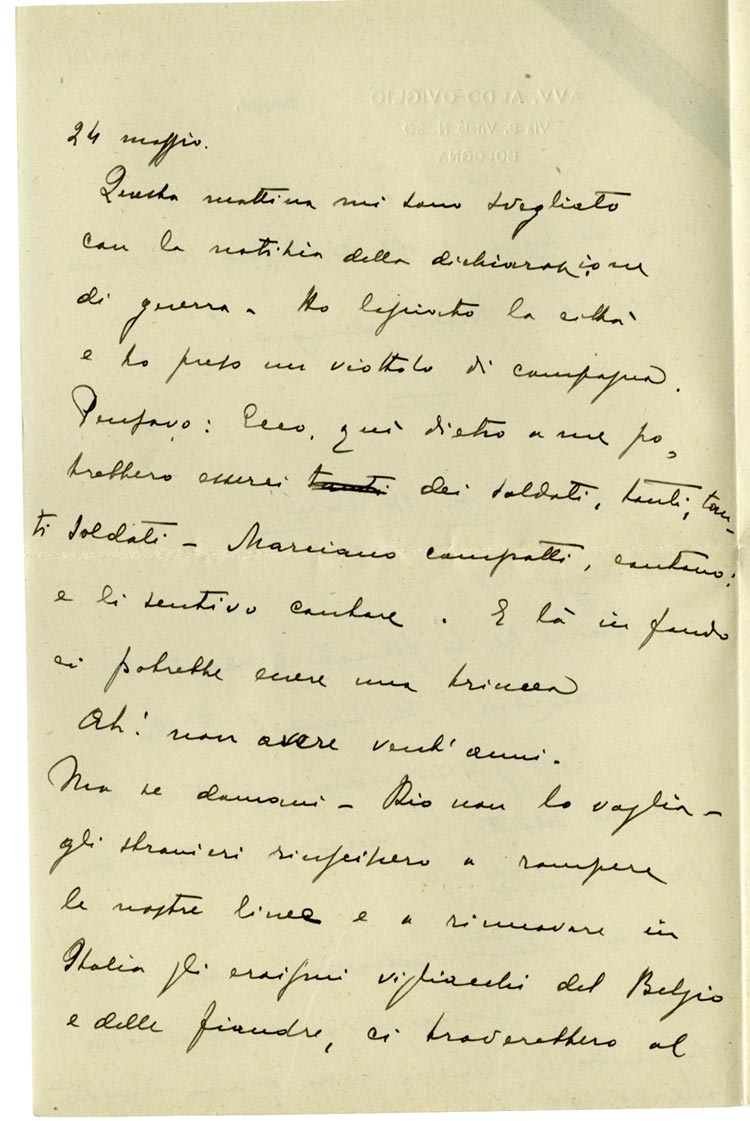 24 maggio.
Questa mattina mi sono svegliato
con la notizia della dichiarazione
di guerra - Ho lasciato la città
e ho preso un viottolo di campagna.
Pensavo: Ecco, qui dietro a me po-
trebbero esserci tanti dei soldati, tanti, tan-
ti soldati - Marciano compatti, cantano:
e li sentivo cantare. E là in fondo
ci potrebbe essere una trincea
Ah! non avere vent'anni.
Ma se domani - Dio non lo voglia -
gli stranieri riuscissero a rompere
le nostre linee e a rinnovare in
Italia gli eroismi vigliacchi del Belgio
e delle fiandre, ci troverebbero al
AVV. ALDO OVIGLIO
BOLOGNA